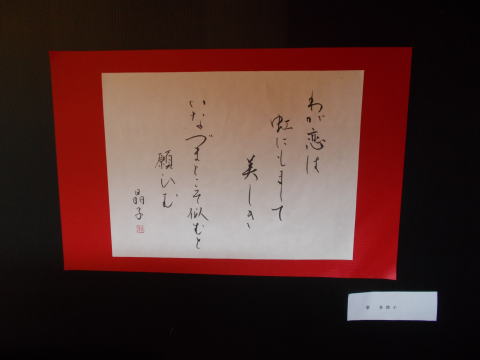 わが恋は
虹にもまして
美しき
いなづまとこそ似むと
願ひぬ
晶子